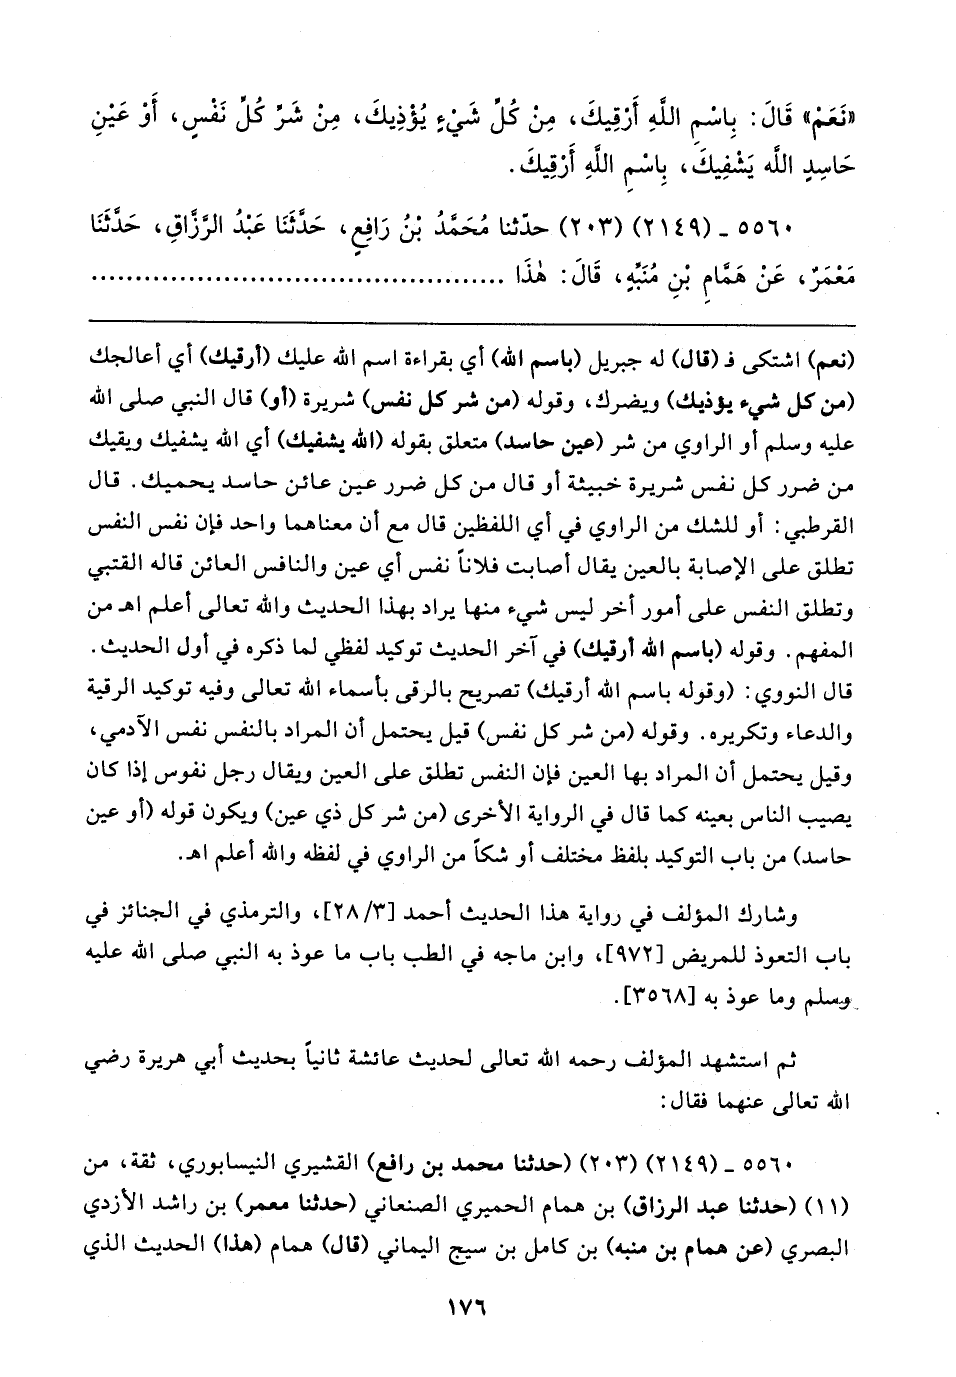 «نَعَمْ» قَالَ: بِاسْمِ اللَّهِ أَرْقِيكَ، مِنْ كُلِّ شَيْءٍ يُؤْذِيكَ، مِنْ شَرِّ كُلِّ نَفْسٍ، أَوْ عَيْنِ
حَاسِدٍ اللَّه يَشْفِيكَ، بِاسْمِ اللَّهِ أَرْقِيكَ.
٥٥٦٠ ـ (٢١٤٩) (٢٠٣) حدّثنا مُحَمَّدُ بْنُ رَافِعٍ، حَدَّثَنَا عَبْدُ الرَّزَّاقِ، حَدَّثَنَا
مَعْمَرٌ، عَنْ هَمَّامِ بْنِ مُنَبِّهٍ، قَالَ: هٰذَا ................................................
(نعم) اشتكى فـ (قال) له جبريل (باسم الله) أي بقراءة اسم الله عليك (أرقيك) أي أعالجك
(من كل شيء يؤذيك) ويضرك، وقوله (من شر كل نفس) شريرة (أو) قال النبي صلى الله
عليه وسلم أو الراوي من شر (عين حاسد) متعلق بقوله (الله يشفيك) أي الله يشفيك ويقيك
من ضرر كل نفس شريرة خبيثة أو قال من كل ضرر عين عائن حاسد يحميك. قال
القرطبي: أو للشك من الراوي في أي اللفظين قال مع أن معناهما واحد فإن نفس النفس
تطلق على الإصابة بالعين يقال أصابت فلاناً نفس أي عين والنافس العائن قاله القتبي
وتطلق النفس على أمور أخر ليس شيء منها يراد بهذا الحديث والله تعالى أعلم اهـ من
المفهم. وقوله (باسم الله أرقيك) في آخر الحديث توكيد لفظي لما ذكره في أول الحديث.
قال النووي: (وقوله باسم الله أرقيك) تصريح بالرقى بأسماء الله تعالى وفيه توكيد الرقية
والدعاء وتكريره. وقوله (من شر كل نفس) قيل يحتمل أن المراد بالنفس نفس الآدمي،
وقيل يحتمل أن المراد بها العين فإن النفس تطلق على العين ويقال رجل نفوس إذا كان
يصيب الناس بعينه كما قال في الرواية الأخرى (من شر كل ذي عين) ويكون قوله (أو عين
حاسد) من باب التوكيد بلفظ مختلف أو شكاً من الراوي في لفظه والله أعلم اهـ.
وشارك المؤلف في رواية هذا الحديث أحمد [٢٨/٣]، والترمذي في الجنائز في
باب التعوذ للمريض [٩٧٢]، وابن ماجه في الطب باب ما عوذ به النبي صلى الله عليه
وسلم وما عوذ به [٣٥٦٨].
ثم استشهد المؤلف رحمه الله تعالى لحديث عائشة ثانياً بحديث أبي هريرة رضي
الله تعالى عنهما فقال:
٥٥٦٠ ـ (٢١٤٩) (٢٠٣) (حدثنا محمد بن رافع) القشيري النيسابوري، ثقة، من
(١١) (حدثنا عبد الرزاق) بن همام الحميري الصنعاني (حدثنا معمر) بن راشد الأزدي
البصري (عن همام بن منبه) بن كامل بن سيج اليماني (قال) همام (هذا) الحديث الذي
١٧٦